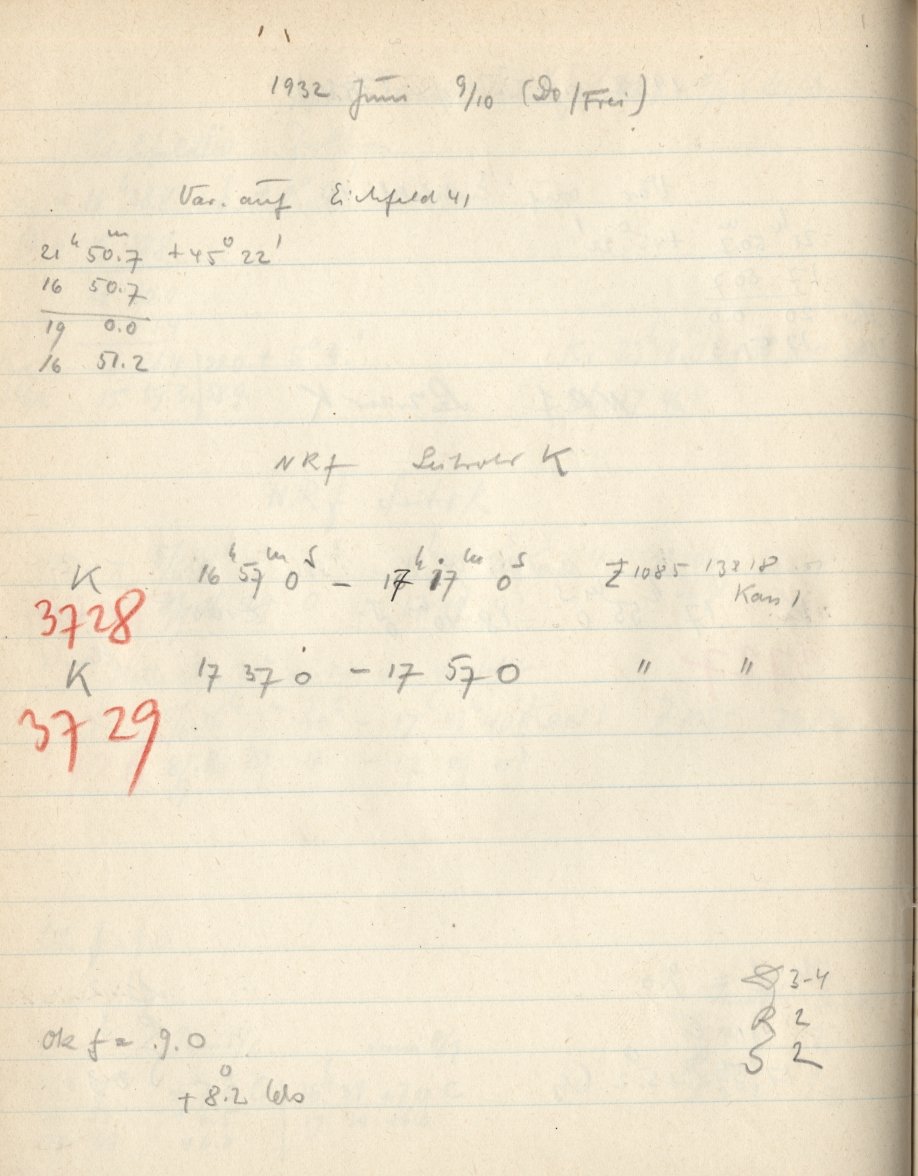 1932 Juni 9/10 (Do/Frei)
Var. auf Eichfeld 41
21ʰ 50.7ᵐ +45° 22'
16 50.7
19 0.0
16 51.2
NRf Leitrohr K
K 16ʰ 57ᵐ 0ˢ – 17ʰ 17ᵐ 0ˢ Z 1085 13218
Kass 1
3728
K 17 37 0 – 17 57 0 " "
3729
3-4
R 2
S 2
ok f = 9.0
+8.2°